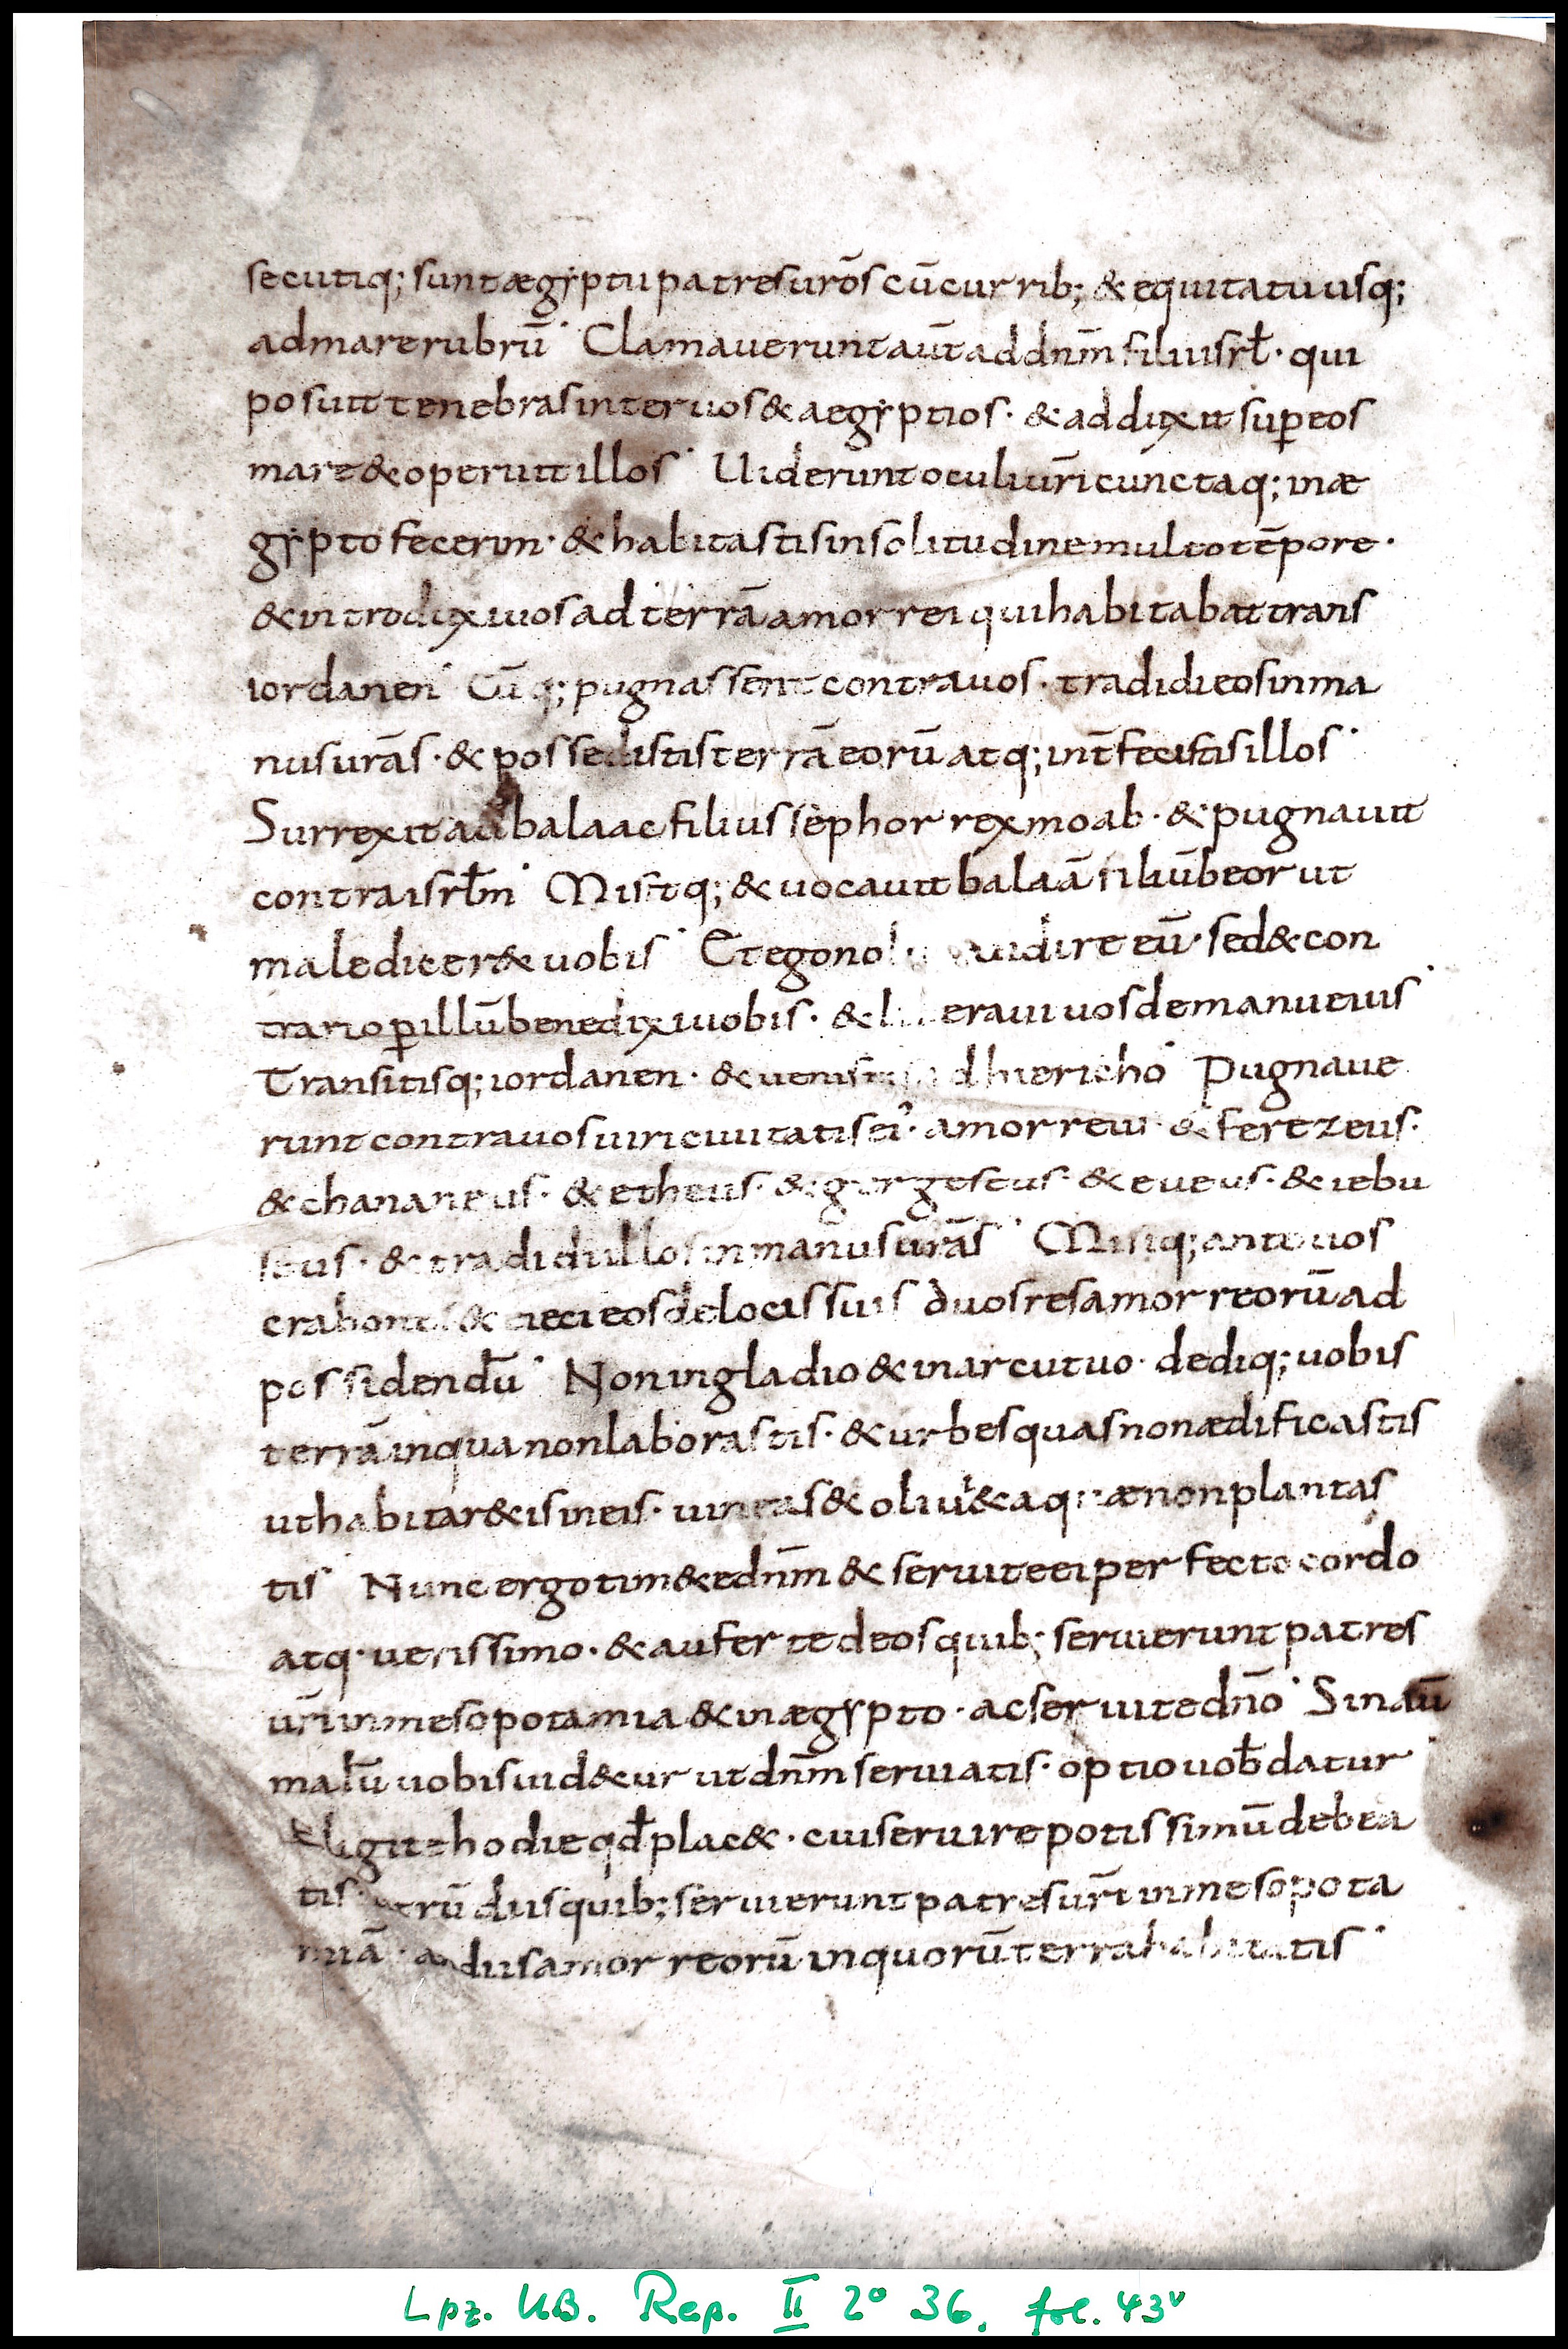 secutiq; sunt ægyptii patres ur̄ōs cū curribꝫ & equitatu usq;
ad mare rubrū Clamauerunt aūt ad dnm̄ filii isrƚ · qui
posuit tenebras inter uos & aegyptios · & adduxit suꝑ eos
mare & operuit illos Uiderunt oculi ur̄i cuncta q; in æ
gypto fecerim · & habitastis in solitudine multo tēpore ·
& introduxi uos ad terrā amorrei qui habitabat trans
iordanen Cūq; pugnassent contra uos · tradidi eos in ma
nus ur̄ās · & possedistis terrā eorū atq; int̄fecistis illos
Surrexit aū balaac filius sephor rex moab · & pugnauit
contra isrƚm Misitq; & uocauit balaā filiū beor ut
maledicer& uobis Et ego audire eū · sed & con
trario ꝑ illū benedixi uobis · & eraui uos de manu eius
Transitisq; iordanen · & uenistis ad hiericho Pugnaue
runt contra uos uiri ciuitatis ei᾽ · amorreus · & ferezeus ·
& chananeus · & etheus · & gergeseus · & eueus · & iebu
seus · & tradidi illos in manus ur̄ās Misiq; ante uos
crabones & eieci eos de locis suis duos reges amorreorū ad
possidendū Non in gladio & in arcu tuo · dediq; uobis
terrā in qua non laborastis · & urbes quas non ædificastis
ut habitar&is in eis · uineas & oliu&a quæ non plantas
tis Nunc ergo tim&e dnm̄ & seruite ei perfecto cordo
atq · uerissimo · & auferte deos quibꝫ seruierunt patres
ur̄i in mesopotamia & in ægypto · ac seruite dnō Sin aū
malū uobis uid&ur ut dnm̄ seruiatis · optio uob̄ datur
Eligite hodie qd̄ plac& · cui seruire potissimū debea
tis utrū diis quibꝫ seruierunt patres ur̄i in mesopota
miā · an diis amorreorū in quorū terra habitatis
Lpz. UB. Rep. II 2° 36, fol. 43ᵛ